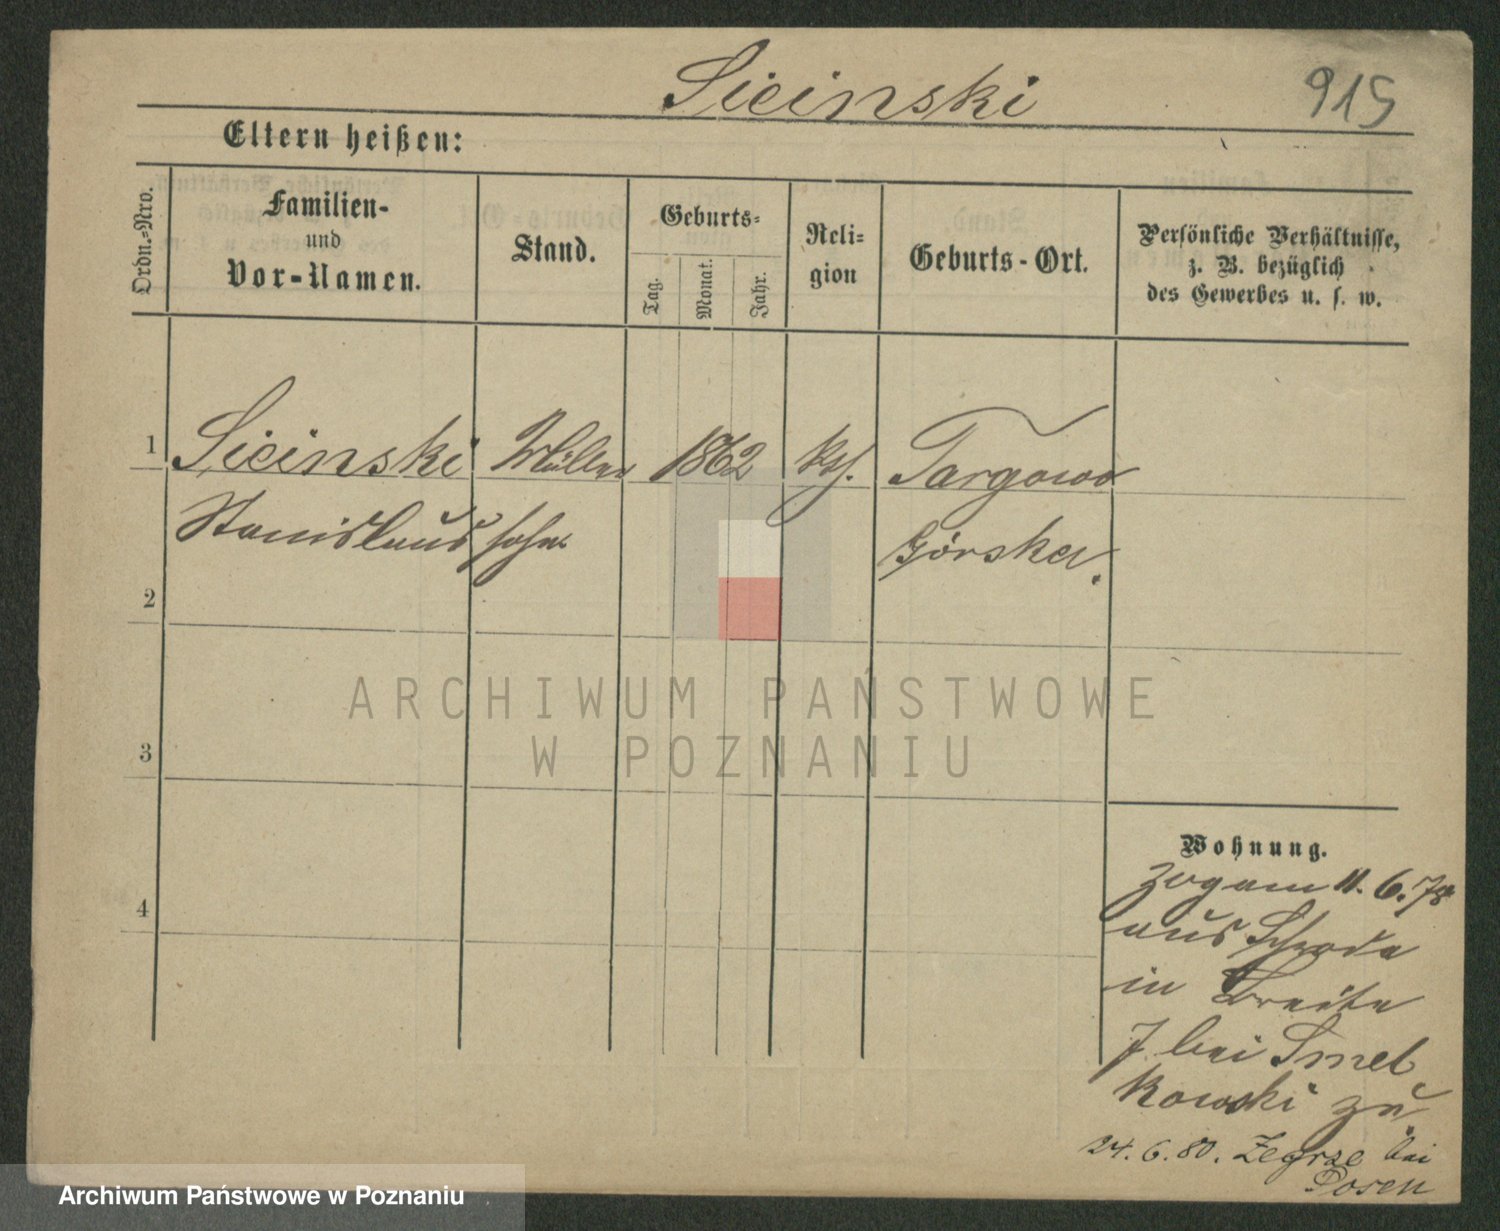 Sicinski
915
Eltern heißen:
Ordn.-Nro.
Familien-
und
Vor-Namen.
Stand.
Geburts-
Tag.
Monat.
Jahr.
Reli-
gion
Geburts-Ort.
Persönliche Verhältnisse,
z. B. bezüglich
des Gewerbes u. s. w.
1
Sicinski Müller 1862 kth. Targowo
Stanislaus sohn Górska.
2
3
4
ARCHIWUM PAŃSTWOWE
W POZNANIU
Wohnung.
zog am 11. 6. 78
aus Schroda
in Breite
7 bei Smel
kowski zu
24. 6. 80. Zegrze bei
Posen
Archiwum Państwowe w Poznaniu